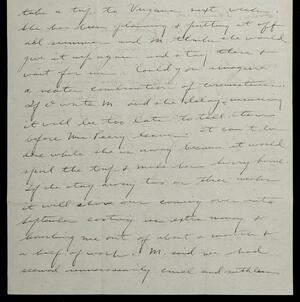 take a trip to Virginia next week.
She has been planning & putting it off
all summer and M. thinks she would
just up again and stay there &
wait for me. Could you imagine
a neater combination of circumstances.
If I write M. and she delays answering
it will be too late to tell them
before Mrs Peery leaves. It can't be
done while she is away because it would
spoil the trip & make her hurry home.
If she stays away two or three weeks
it will throw our coming over into
September costing us extra money &
knocking me out of about a month &
a half of work. M. said we had
seemed unnecessarily cruel and ruthless